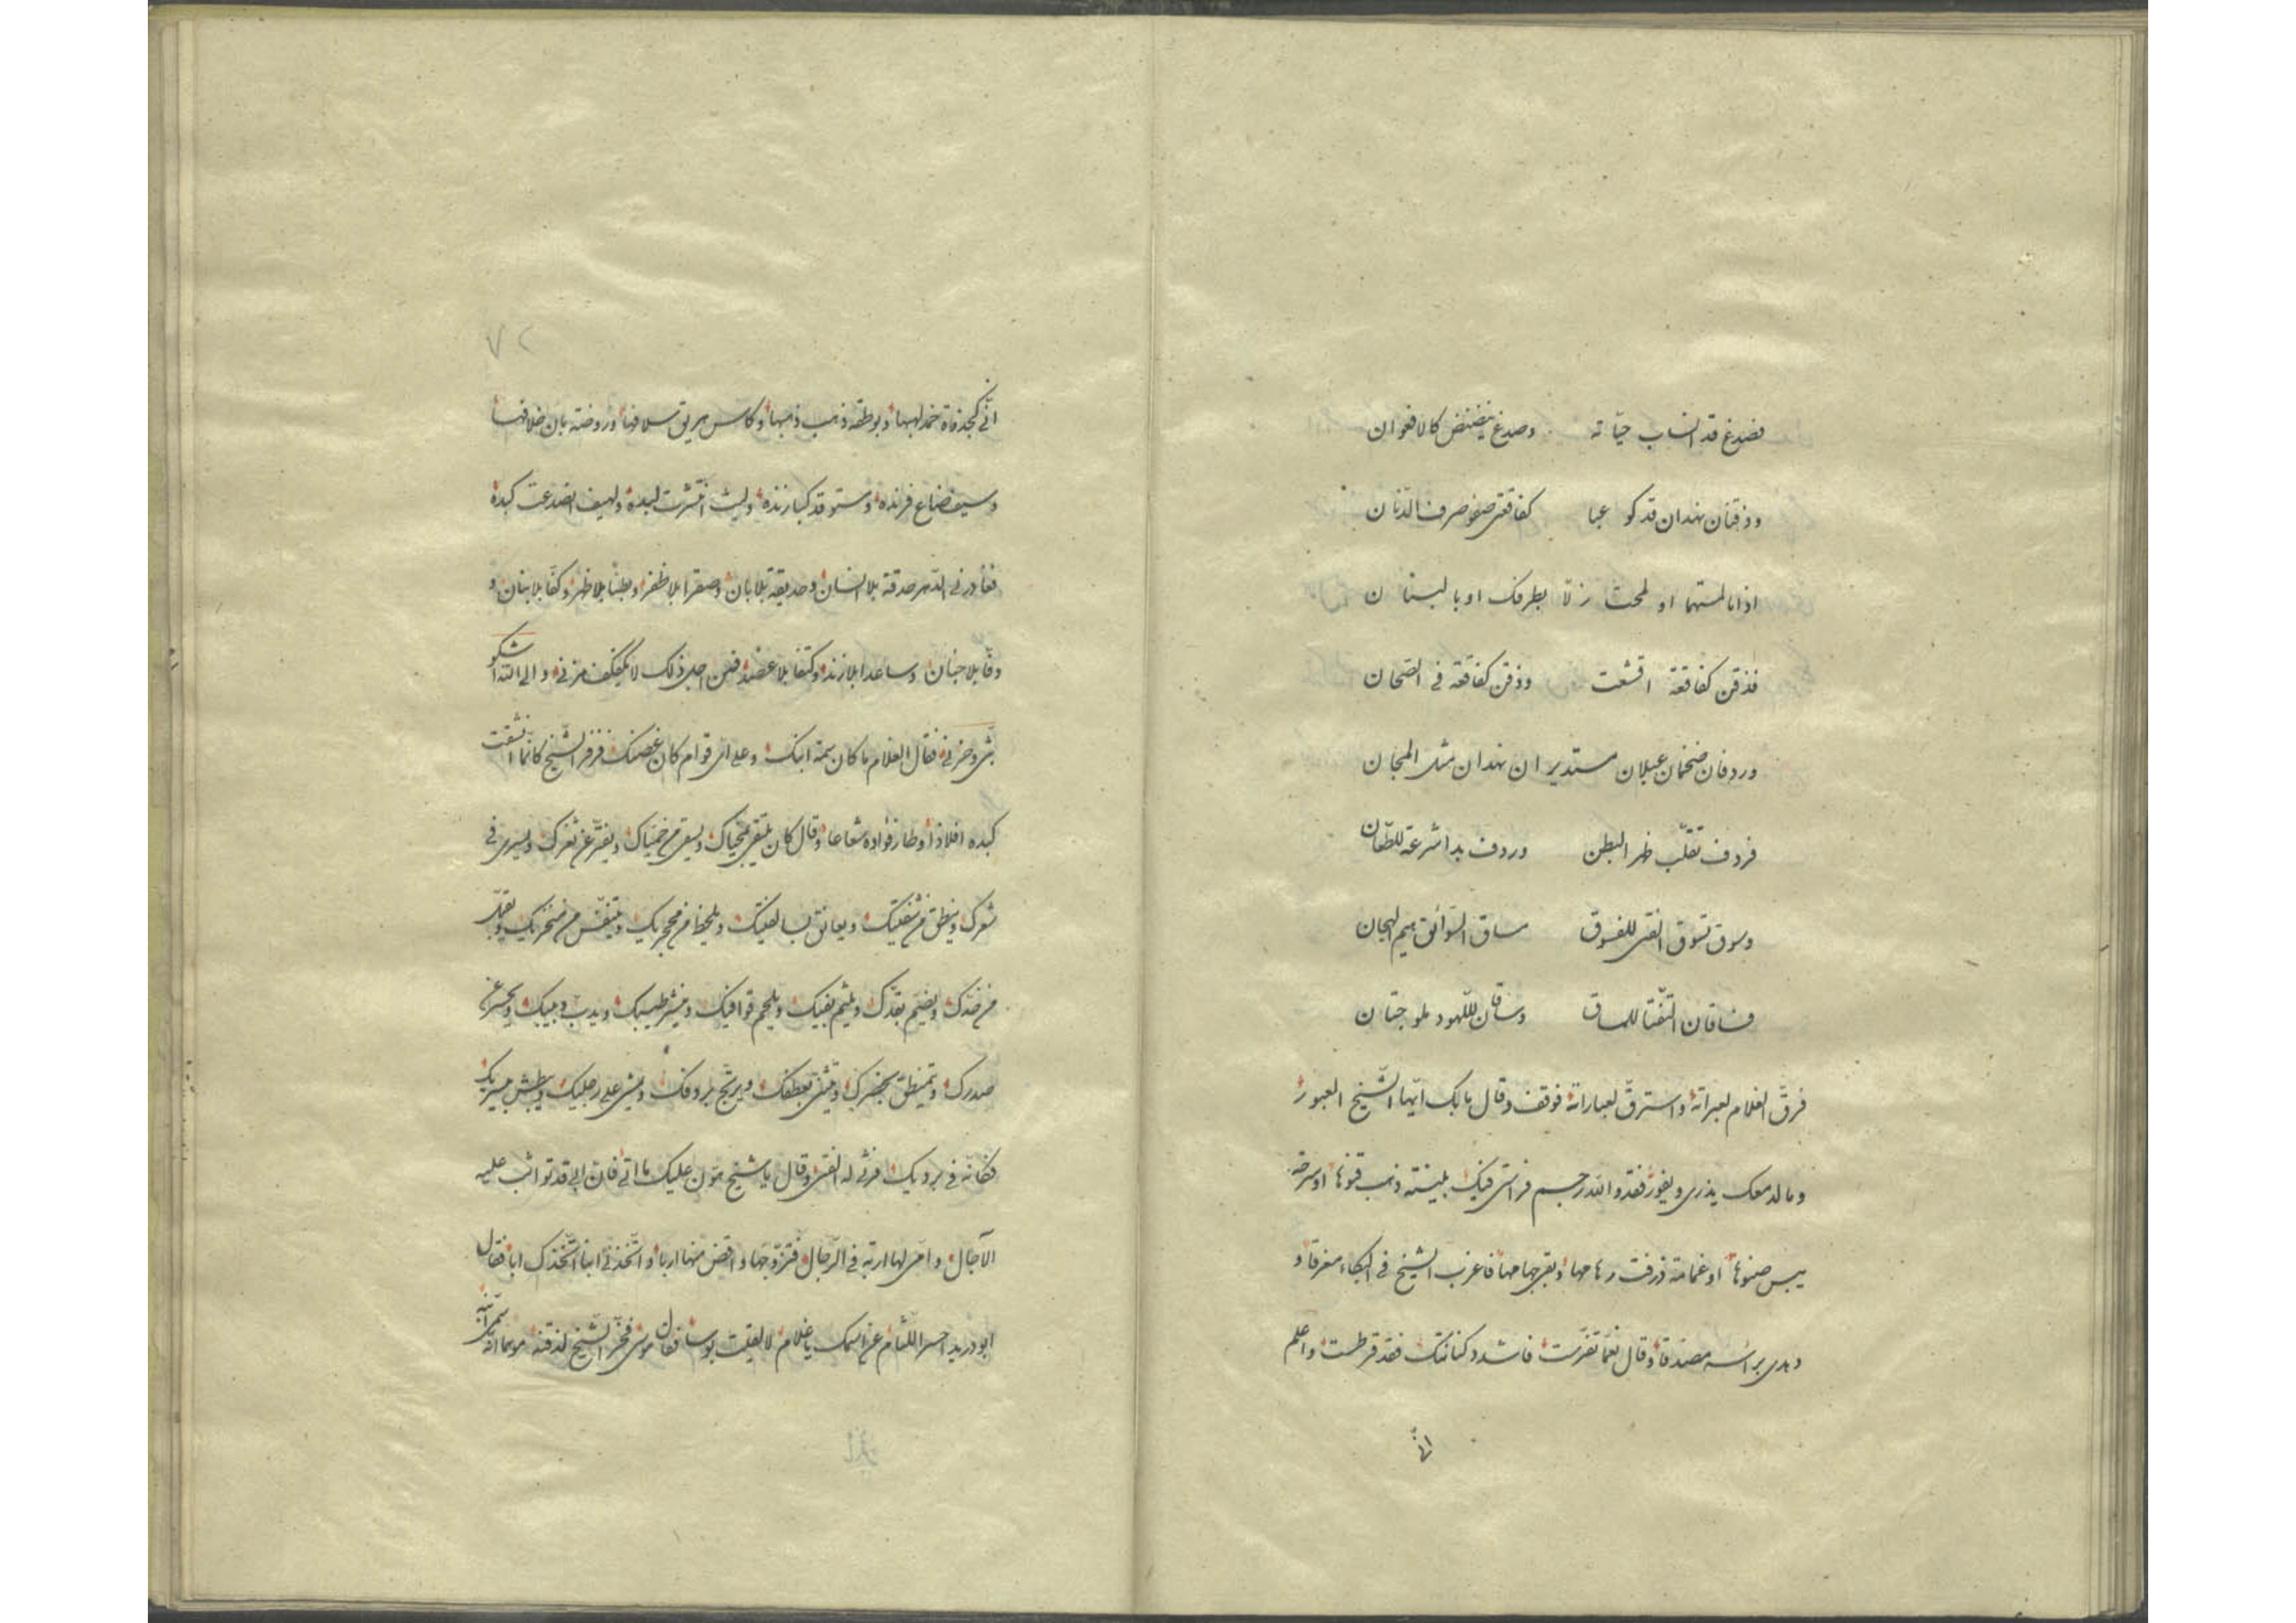 فصدغ قد انساب حیّاته وصدغ ینضنض کالافعوان
وذقنان نهدان قد کوعبا کفاقعتی صفو صرف الدّنان
اذا ما لمستهما او لمحت زلّا بطرفک او بالبنان
فذقن کفاقعة اقشعت وذقن کفاقعة فی الصّحان
وردفان ضخمان عبلان مستدیران نهدان مثل المجان
فردف تقلّب ظهر البطن وردف بدا شرعة للطّعان
وسوق تسوق الفتی للفسوق مساق السّوائق هیم الهجان
فساقان التفّتا للمساق وساقان للّهو دملوجتان
فرقّ الغلام لعبراته واسترقّ لعباراته فوقف وقال ما بک ایّها الشّیخ العبور
وما لدمعک یذری ویفور فقد والله رجم فراستی فیک بلینة ذهب قنوها او سرحة
یبس صنوها او غمامة ذرفت رهامها وبقی جهامها فاغرب الشیخ فی البکاء مغرقا و
دهدی برأسه مصدّقا وقال نعما تفرّست فاشدد کنانتک فقد قرطست واعلم
انّی
۷۲
انّی کجذوة خمد لهبها وبوطقة ذهب ذهبها وکاس هریق سلافها وروضة بان خلافها
وسیف ضاع فرنده ومستوقد کبا زنده ولیث انتشرت لبده ولهیف انصدعت کبده
فغادرنی الدّهر حدقة بلا انسان وحدیقة بلا بان وصقرا بلا ظفر وبطنا بلا ظهر وکفّا بلا بنان و
وقّا بلا جنان وساعدا بلا زند وکتفا بلا عضد فمن اجل ذلک لا یکفکف مزنی والی الله اشکو
بثّی وحزنی فقال الغلام ما کان سمة ابنک وعلی ایّ قوام کان غصنک فزفر الشّیخ کانّما انشقّت
کبده افلاذا وطار فؤاده شعاعا وقال کان یلتقی بمحیاک ویسقی من حمیّاک ویفترّ عن ثغرک ویسری فی
شعرک وینطق من شفتیک ویعانق بسالفتیک ویلحظ من محجریک ویتنفّس من منخریک ویقبّل
من خدّک ویضمّ بقدّک ویلثم بفیک ویلحم قوافیک وینشر طیبک ویدبّ دبیبک ویحسر عن
صدرک ویتمنطق بخصرک ویتثنّی بعطفک ویرتجّ بردفک ویمشی علی رجلیک ویبطش بیدیک
فکانّه فی بردیک فرثی له الفتی وقال یا شیخ هوّن علیک ما اتی فانّ ابی قد تواثب علیه
الآجال وامّی لها اربة فی الرّجال فتزوّجها واقض منها اربا واتّخذنی ابنا اتّخذک ابا فقال
ابو درید احسر اللّثام عن اسمک یا غلام لا لقیت بوسا فقال موسی فخرّ الشّیخ لذقنه موهما انّه سمّی ابنه